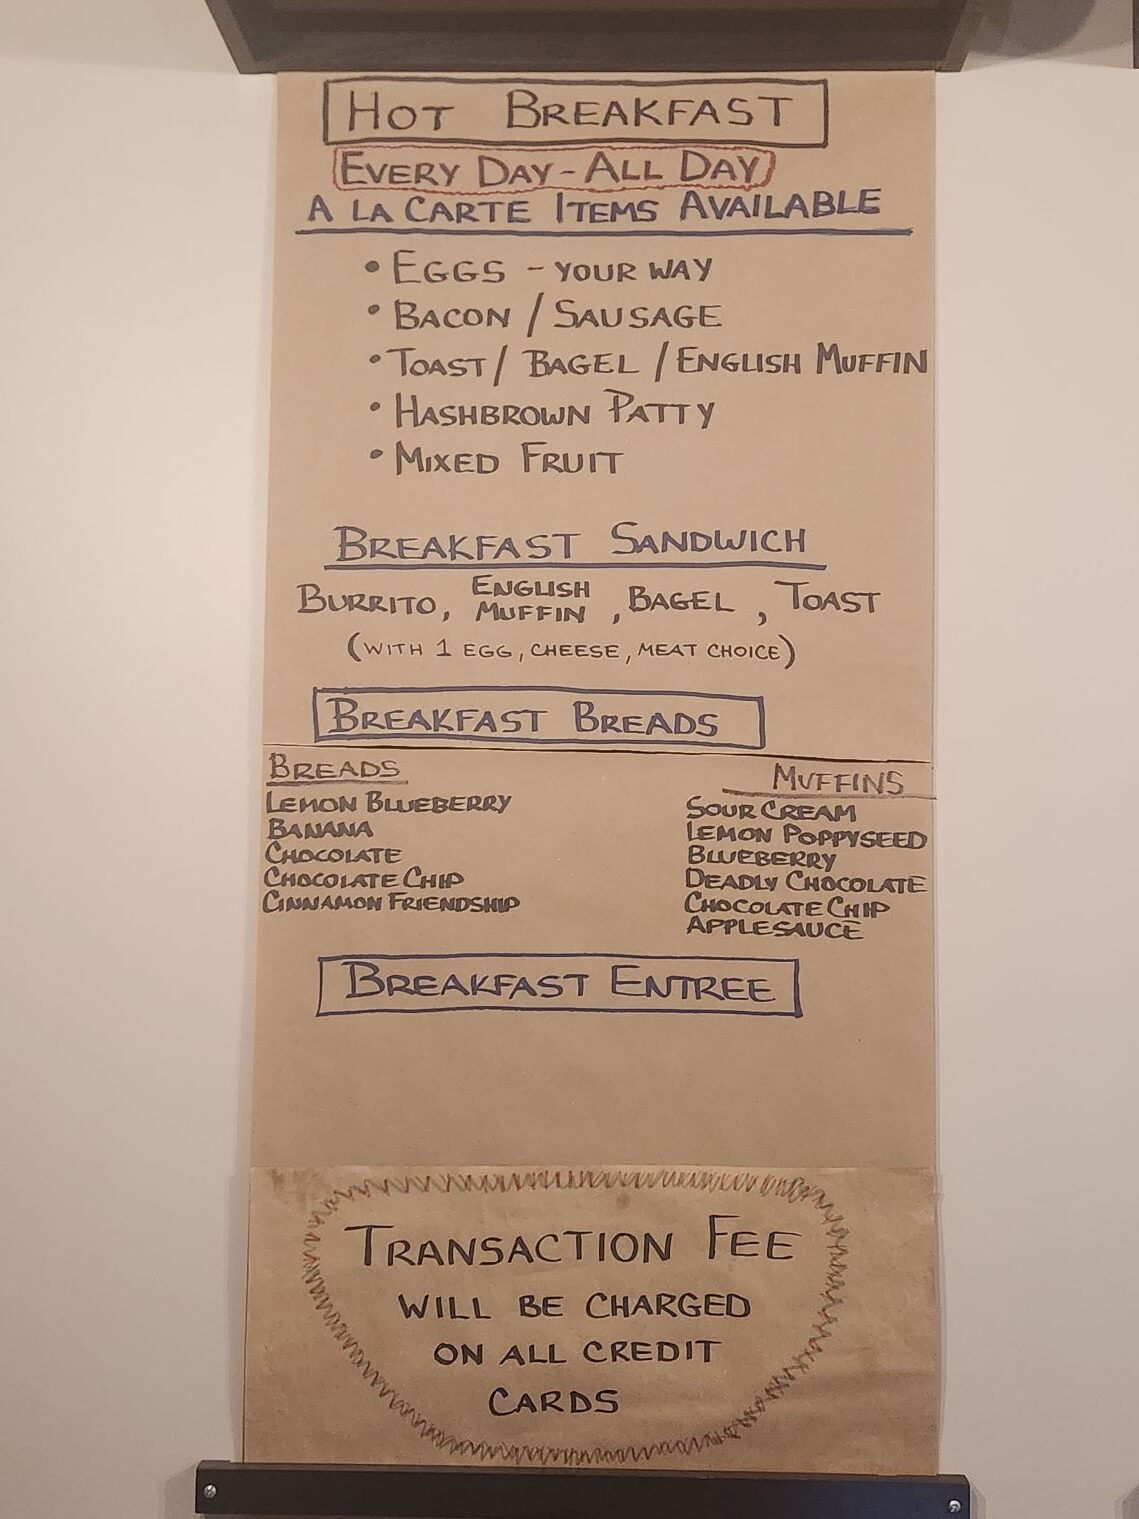 HOT BREAKFAST
EVERY DAY - ALL DAY
A LA CARTE ITEMS AVAILABLE
• EGGS - YOUR WAY
• BACON / SAUSAGE
• TOAST / BAGEL / ENGLISH MUFFIN
• HASHBROWN PATTY
• MIXED FRUIT
BREAKFAST SANDWICH
BURRITO, ENGLISH MUFFIN, BAGEL, TOAST
(WITH 1 EGG, CHEESE, MEAT CHOICE)
BREAKFAST BREADS
BREADS
LEMON BLUEBERRY
BANANA
CHOCOLATE
CHOCOLATE CHIP
CINNAMON FRIENDSHIP
MUFFINS
SOUR CREAM
LEMON POPPYSEED
BLUEBERRY
DEADLY CHOCOLATE
CHOCOLATE CHIP
APPLESAUCE
BREAKFAST ENTREE
TRANSACTION FEE
WILL BE CHARGED
ON ALL CREDIT
CARDS